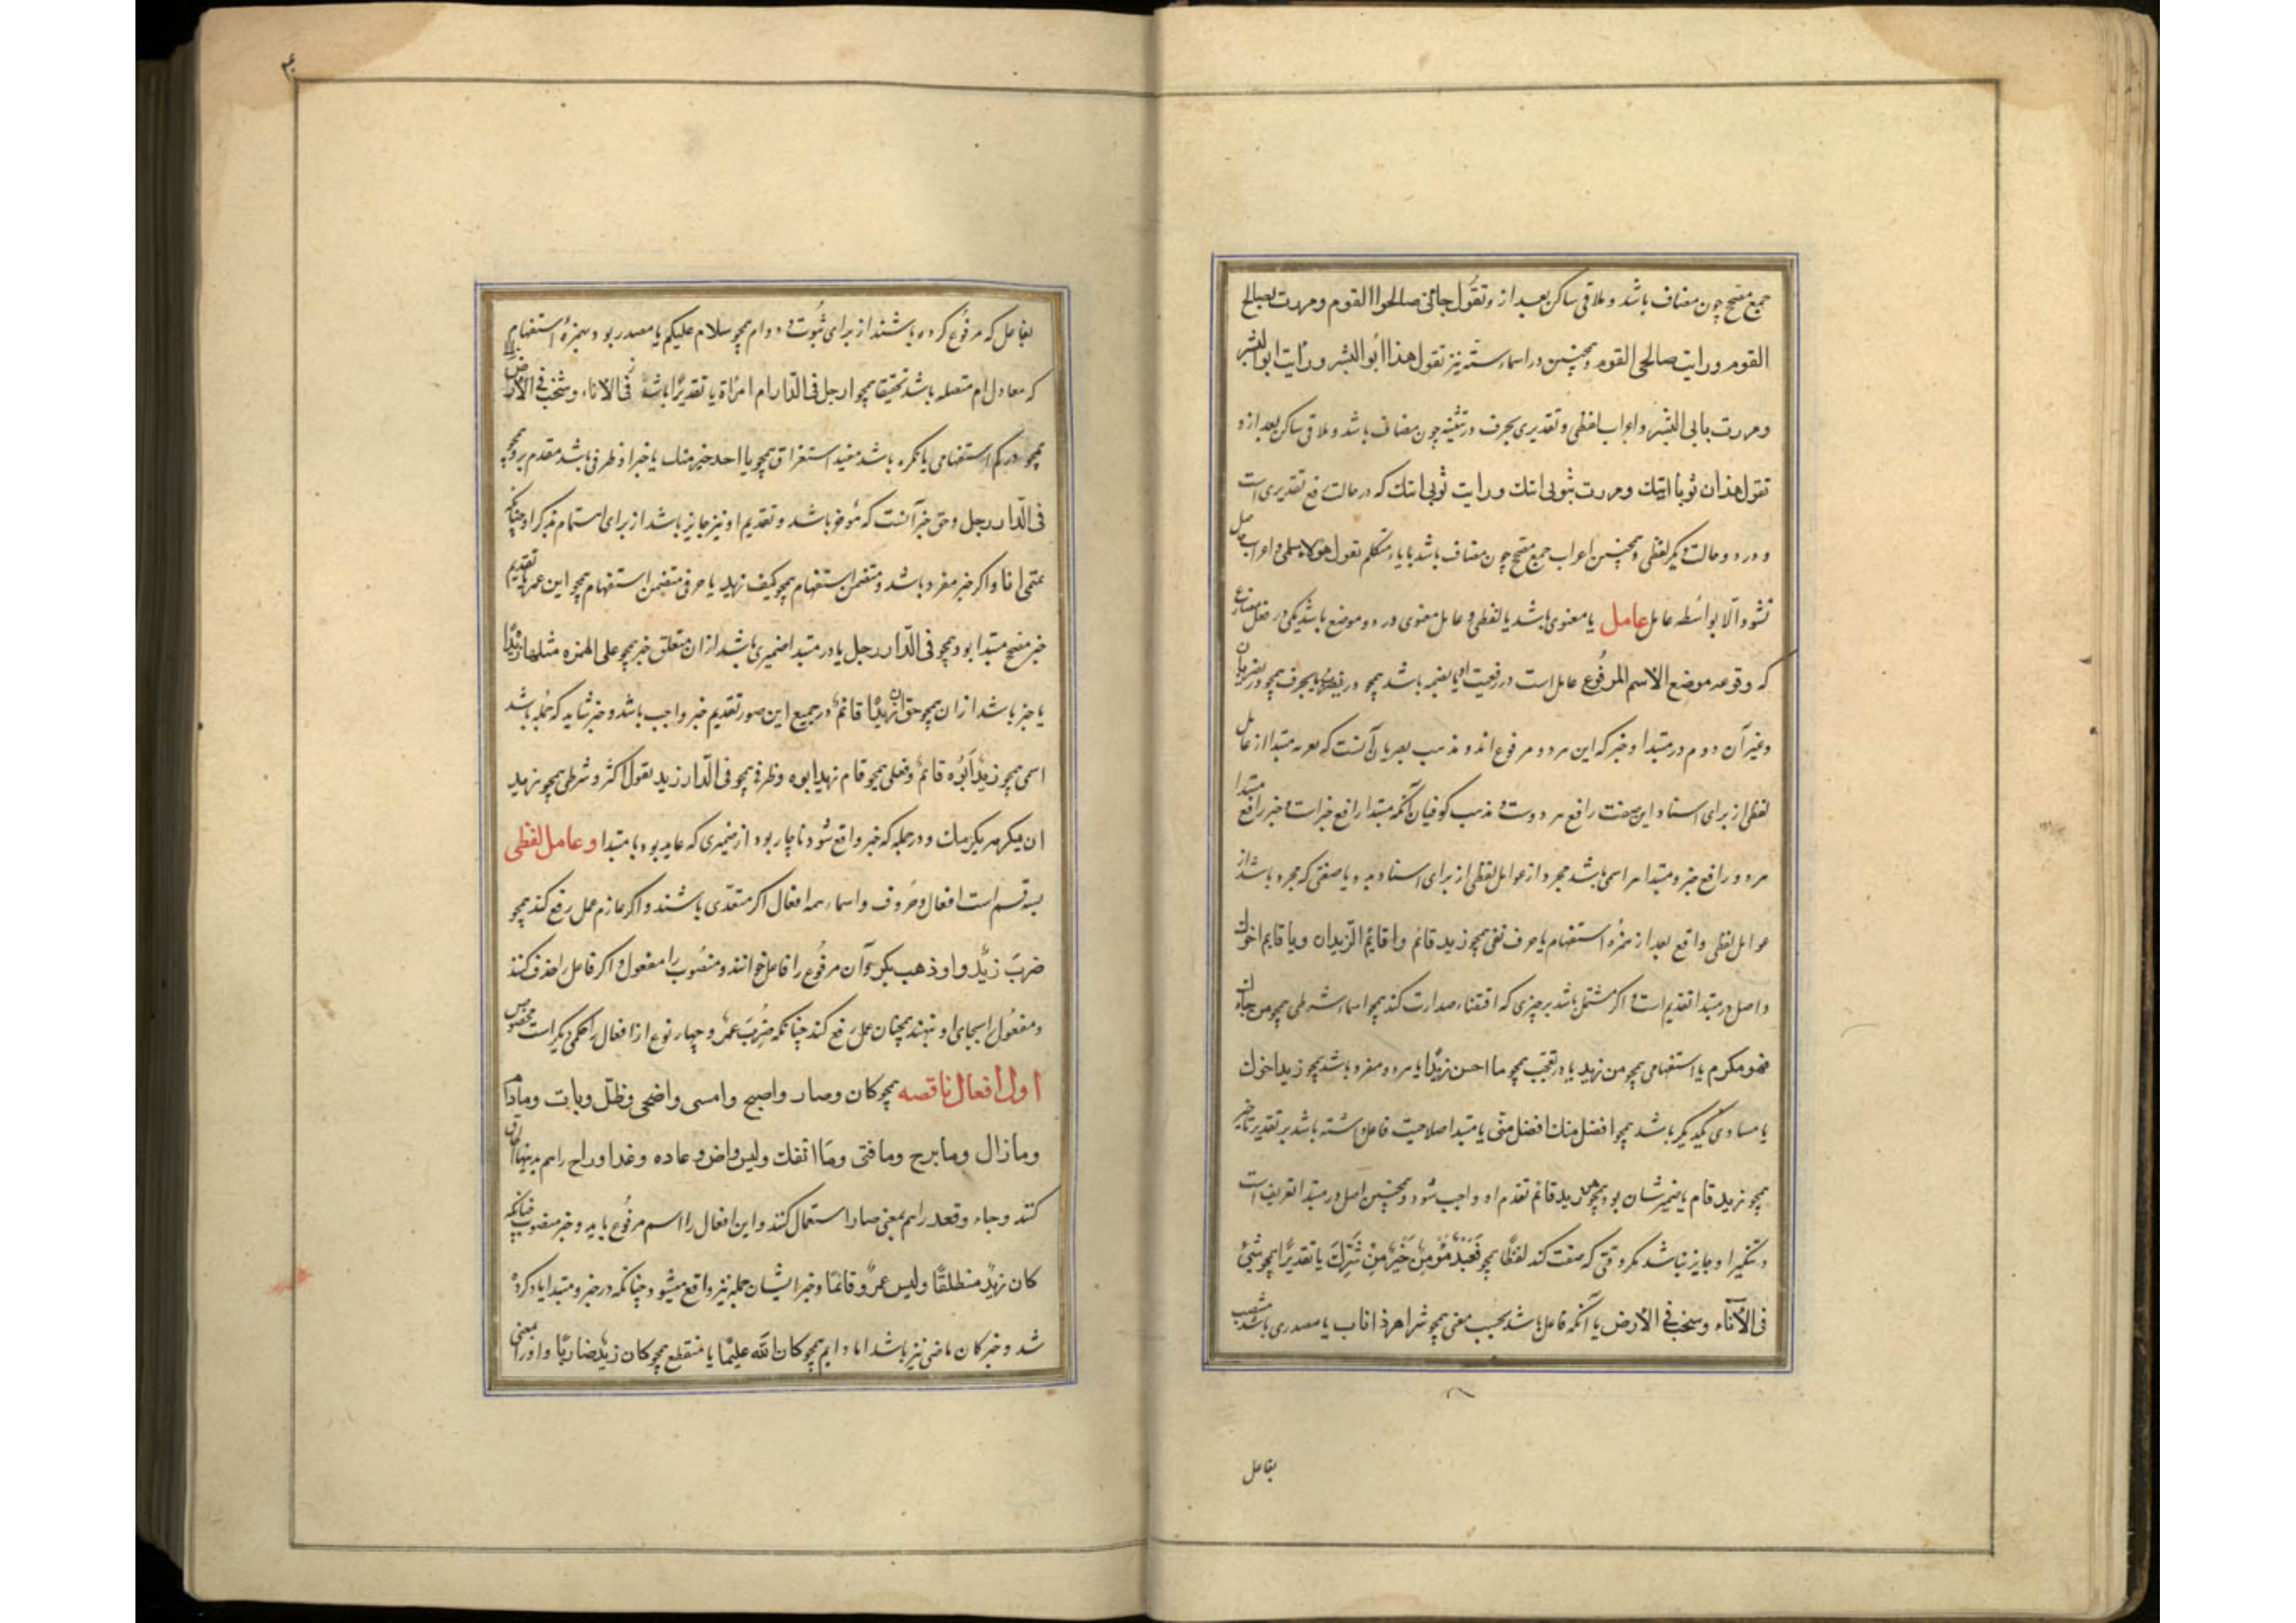 جمع مصحح چون مضاف باشد و ملاقی ساکن بعد از و تقول جائنی صالحوا القوم ومررت بصالح
القوم ورایت صالحی القوم وهمچنین در اسماء ستّه نیز تقول هذا ابو البشر ورایت ابا البشر
ومررت بابی البشر واعراب لفظی و تقدیری بحرف در تثنیه چون مضاف باشد وملاقی ساکن بعد از و
تقول هذان ثوبا ابنك ومررت بثوبی ابنك ورایت ثوبی ابنك که در حالت رفع تقدیری است
و در دو حالت دیگر لفظی وهمچنین اعراب جمع مصحح چون مضاف باشد با یاء متکلم تقول هؤلاء مسلمی و اعراب حاصل
نشود الّا بواسطه عامل عامل یا معنوی باشد یا لفظی و عامل معنوی در دو موضع باشد یکی در فعل مضارع
که وقوعه موضع الاسم المرفوع عامل است در رفعیت او یا بضمه باشد همچو یضرب یا بحرف همچو یضربان
وغیر آن دوم در مبتدا و خبر که این هر دو مرفوع اند و مذهب بصریان آنست که تعریه مبتدا از عامل
لفظی از برای اسناد این صفت رافع هر دوست و مذهب کوفیان آنکه مبتدا رافع خبر است و خبر رافع مبتدا
هر دو رافع خبر و مبتدا هر اسمی باشد مجرد از عوامل لفظی از برای اسناد بدو یا صفتی که مجرد باشد از
عوامل لفظی واقع بعد از همزه استفهام یا حرف نفی همچو زید قائم و اقایم الزیدان و ما قایم اخواك
واصل در مبتدا تقدیم است و اگر مشتمل باشد بر چیزی که اقتضاء صدارت کند همچو اسماء شرطی همچو من جاءك
فهو مکرم یا استفهامی همچو من زید یا در تعجب همچو ما احسن زیدًا یا هر دو مفرد باشد همچو زید اخوك
یا مساوی یکدیگر باشد همچو افضل منك افضل منی یا مبتدا صلاحیت فاعل داشته باشد بر تقدیر تاخیر
همچو زید قام یا ضمیر شان بود همچو هو زید قائم تقدم او واجب شود وهمچنین اصل در مبتدا تعریف است
وتنکیر او جایز نباشد مگر وقتی که صفت کند لفظًا همچو فَعَبْدٌ مُؤمِنٌ خَیْرٌ مِنْ مُشْرِكٍ یا تقدیرًا همچو شیئ
فی الاناء وسخب فی الارض یا آنکه فاعل باشد بحسب معنی همچو شر اهر ذا ناب یا مصدری باشد منتصب
بفاعل
بفاعل که مرفوع کرده باشند از برای ثبوت و دوام همچو سلام علیکم یا مصدر بود بهمزه استفهام
که معادل ام متصله باشد تحقیقا همچو ارجل فی الدّار ام امرَاة یا تقدیرًا باشد فی الاناء وشخب فی الارض
همچو در کم استفهامی یا نکره باشد مفید استغراق همچو ما احد خیر منك یا خبر او ظرفی باشد مقدم برو همچو
فی الدّار رجل وحق خبر آنست که مؤخر باشد و تقدیم او نیز جایز باشد از برای اهتمام بذکر او چنانکه
تمیمی انا و اگر خبر مفرد باشد و متضمن استفهام همچو کیف زید یا حرفی متضمن استفهام همچو این عمرو یا تقدیم
خبر مصحح مبتدا بود همچو فی الدّار رجل یا در مبتدا ضمیری باشد از ان متعلق خبر همچو علی التمره مثلها زبدًا
یا خبر باشد از ان همچو حق ان زیدًا قائم در جمیع این صور تقدیم خبر واجب باشد و خبر شاید که جمله باشد
اسمی همچو زید اَبُوه قائم وفعلی همچو قام زید ابوه وظرفی همچو فی الدّار زید بقول اکثر و شرطی همچو زید
ان یکرمه یکرمك و در جمله که خبر واقع شود ناچار بود از ضمیری که عاید بود با مبتدا و عامل لفظی
بسه قسم است افعال و حروف و اسماء همه افعال اگر متعدی باشند و اگر لازم عمل رفع کند همچو
ضرب زیدٌ و ذهب بکر و آن مرفوع را فاعل خوانند و منصوب را مفعول و اگر فاعل را حذف کنند
ومفعول را بجای او بنهند همچنان عمل رفع کند چنانکه ضُرِبَ عمرو و چهار نوع از افعال را حکمی دیگر است مخصوص
اول افعال ناقصه همچو کان وصار واصبح وامسی واضحی وظلّ وبات ومادام
ومازال ومابرح ومافتی وما انفك ولیس واض وعاد وغدا وراح را هم بدینها الحاق
کنند وجاء وقعد را هم بمعنی صار استعمال کنند و این افعال را اسم مرفوع باید و خبر منصوب چنانکه
کان زیدٌ منطلقًا ولیس عمرٌو قائمًا وخبر ایشان جمله نیز واقع میشود چنانکه در خبر و مبتدا یاد کرده
شد و خبر کان ماضی نیز باشد اما دایم همچو کان الله علیمًا یا منقطع همچو کان زید ضاربًا و او را معنی